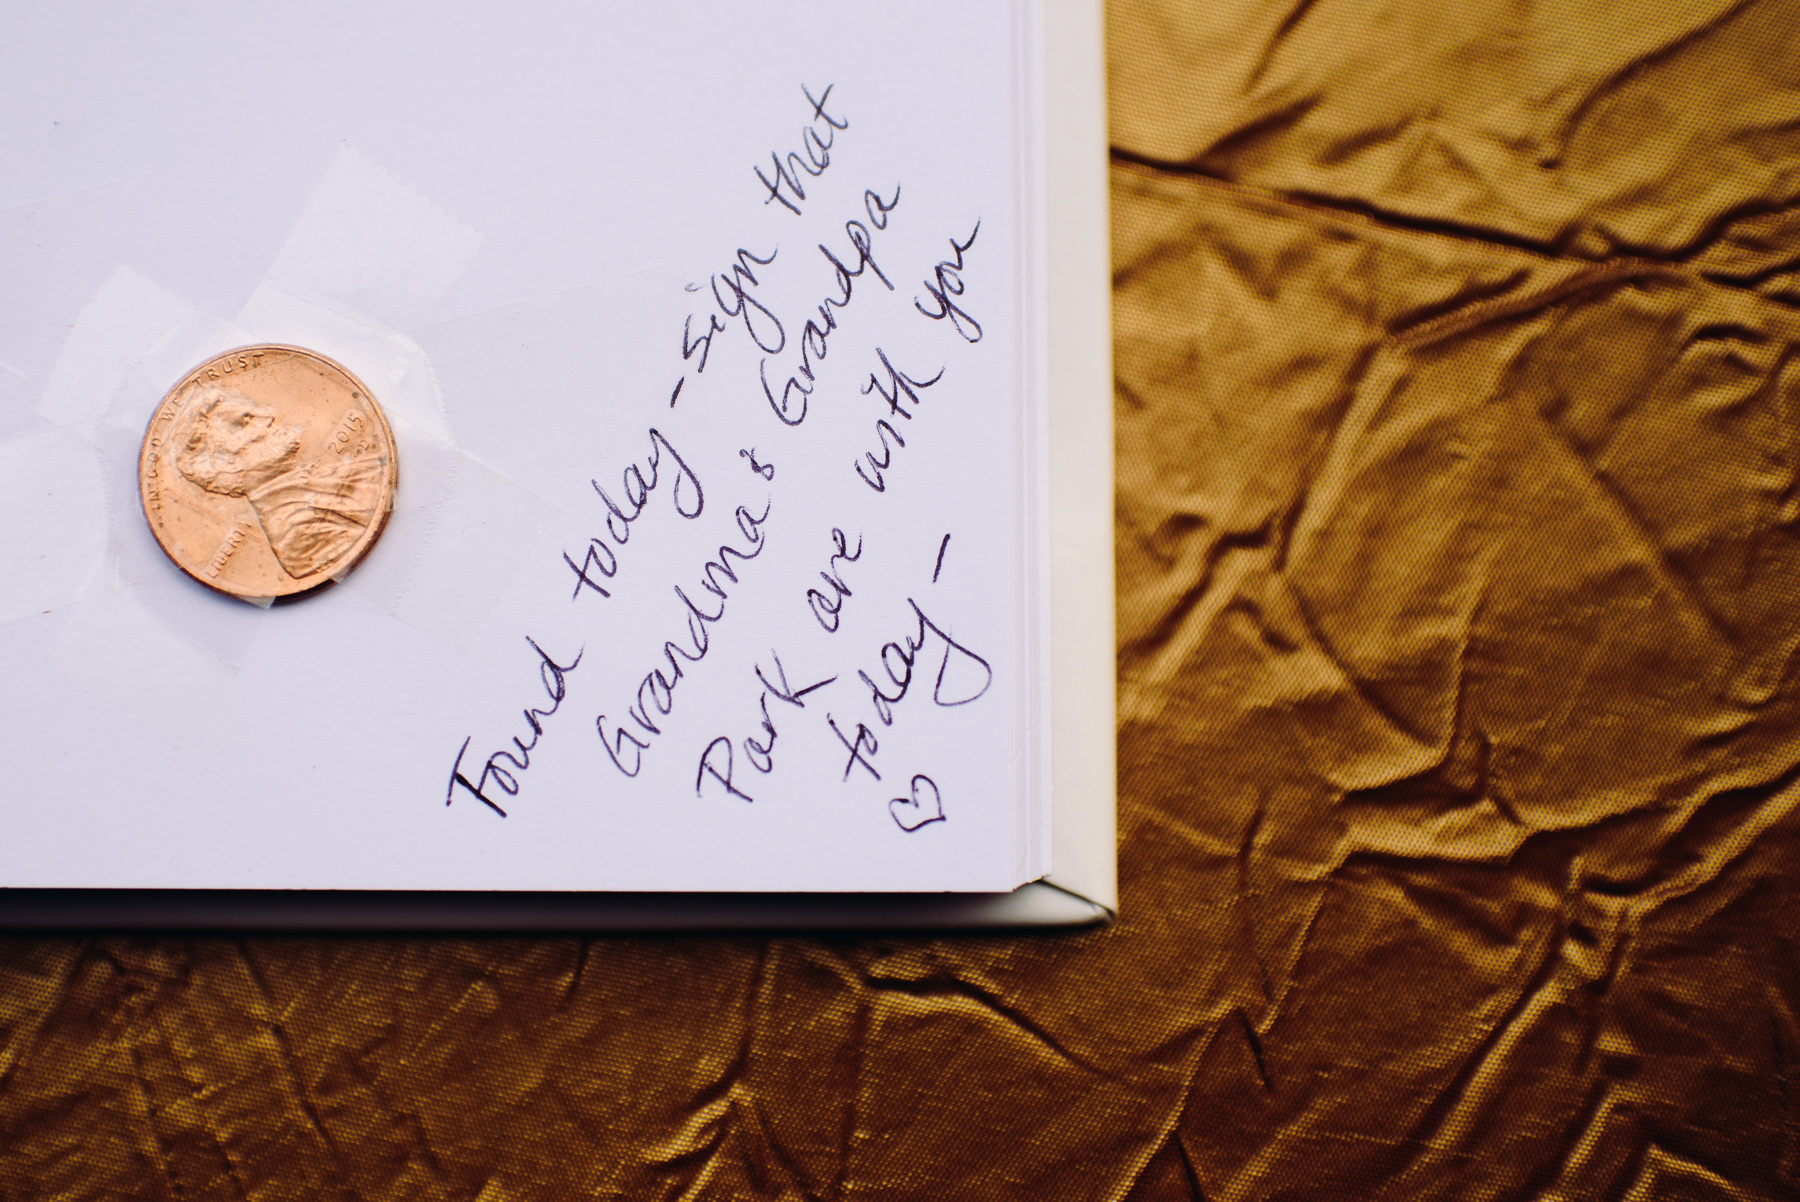 IN GOD WE TRUST
LIBERTY
2015
D
Found today - sign that
Grandma & Grandpa
Park are with you
today -
♡